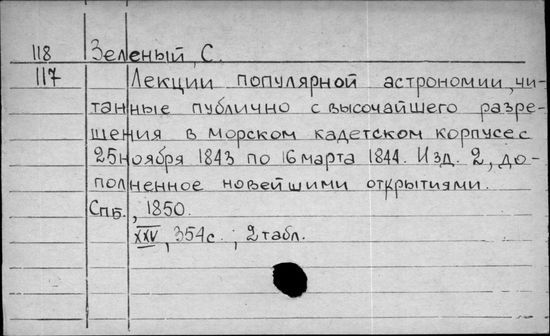 118 Зеленый, С.
117 Лекции популярной астрономии, чи-
танные публично с высочайшего разре-
шения в морском кадетском корпусе с
25 ноября 1843 по 16 марта 1844. Изд. 2, до-
полненное новейшими открытиями.
Спб., 1850.
XXV, 354 с., 2 табл.